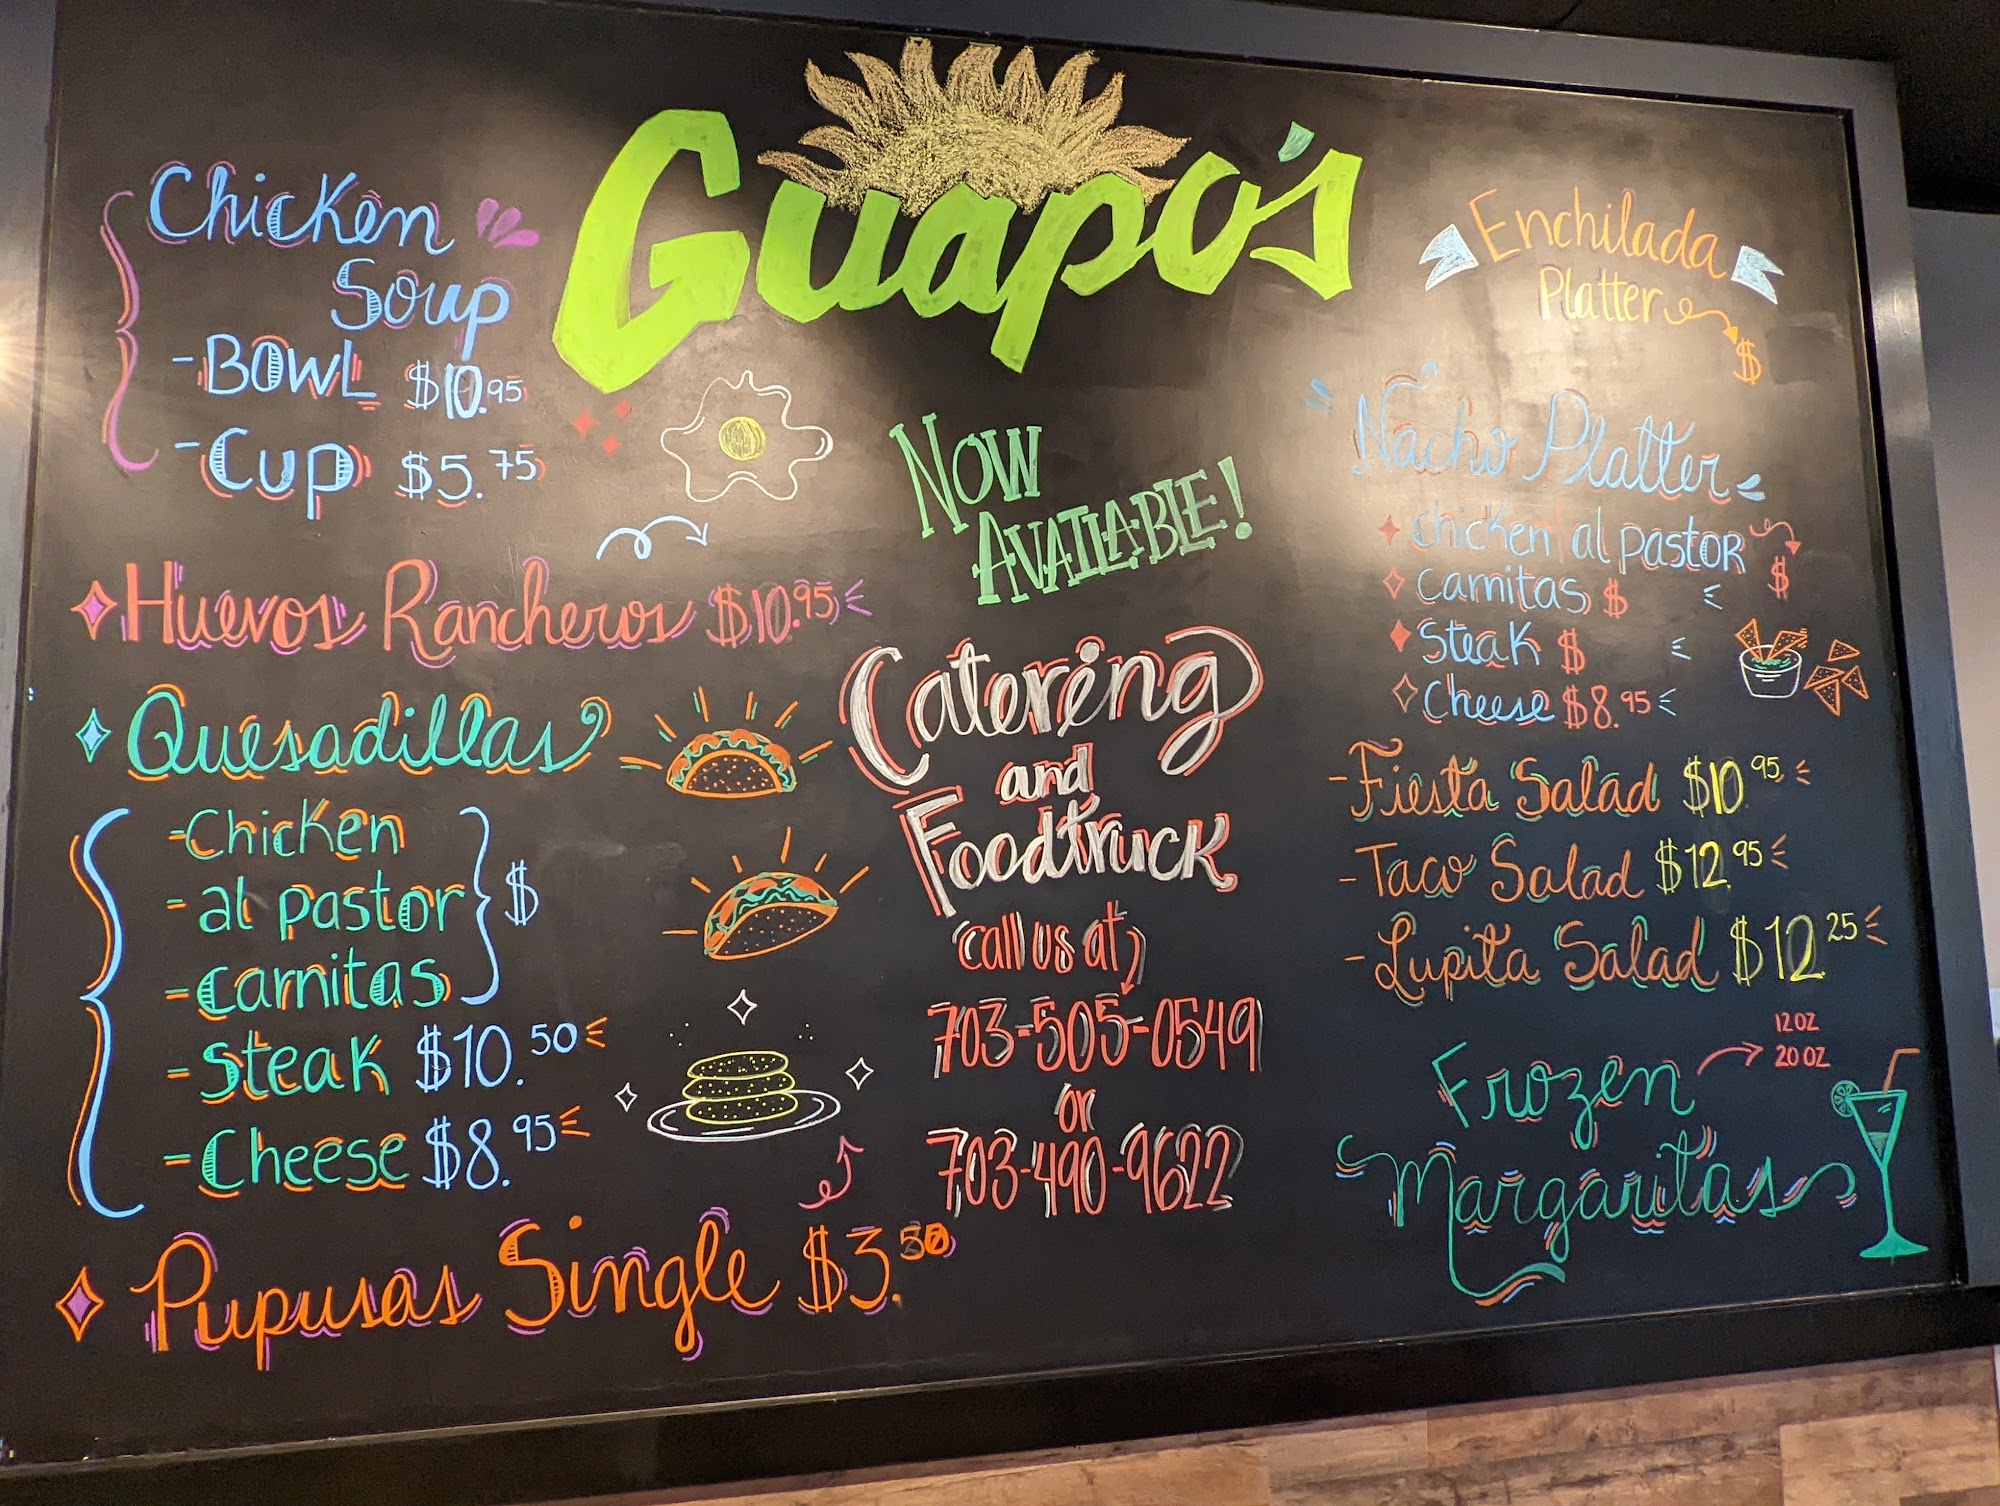 Guapo's
Chicken
Soup
- BOWL $10.95
- Cup $5.75
Huevos Rancheros $10.95
Quesadillas
- Chicken
- al pastor
- carnitas
$
- Steak $10.50
- Cheese $8.95
Pupusas Single $3.50
NOW
AVAILABLE!
Catering
and
Foodtruck
call us at
703-505-0549
or
703-490-9622
Enchilada
Platter
$
Nacho Platter
Chicken al pastor
$
Carnitas $
Steak $
Cheese $8.95
- Fiesta Salad $10.95
- Taco Salad $12.95
- Lupita Salad $12.25
Frozen
12 OZ
20 OZ
Margaritas